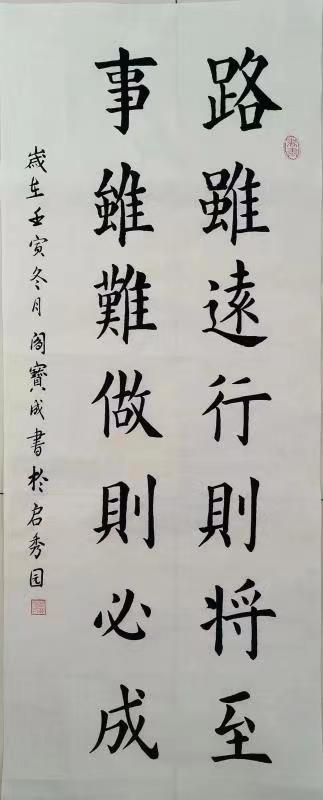 路雖遠行則将至
事雖難做則必成
歲在壬寅冬月阎寶成書於启秀园